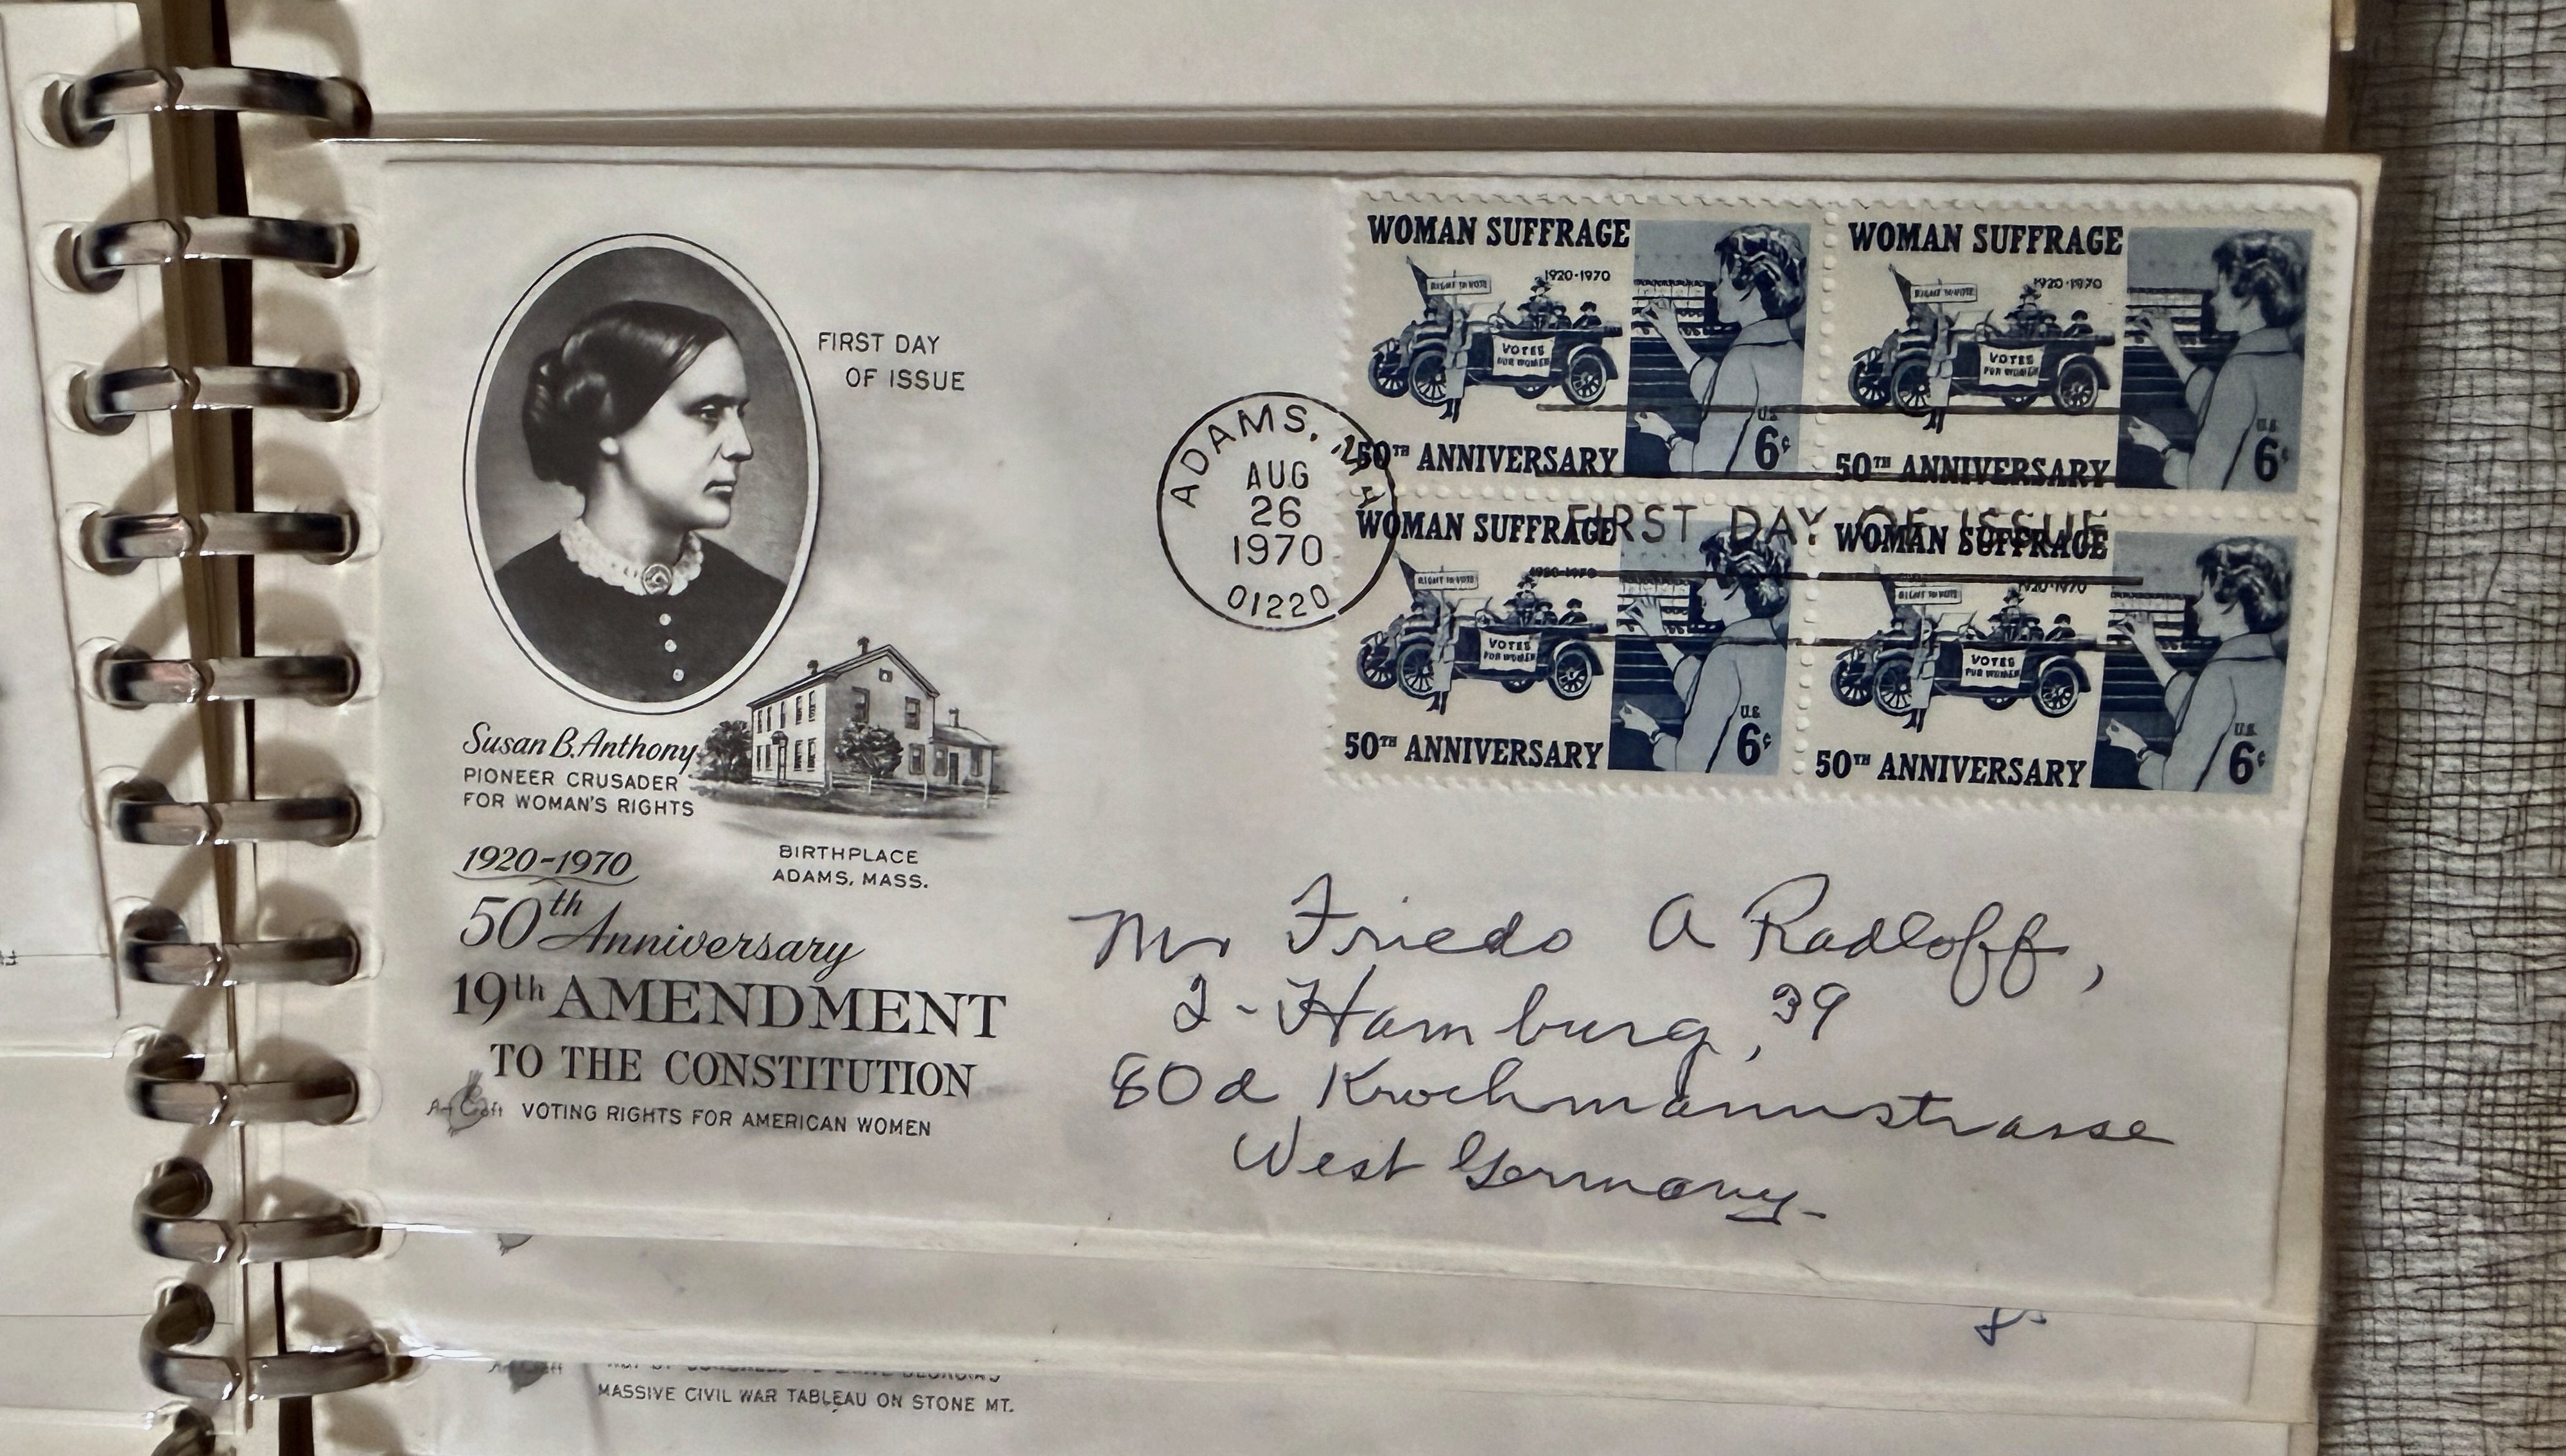 FIRST DAY
OF ISSUE
Susan B. Anthony
PIONEER CRUSADER
FOR WOMAN'S RIGHTS
BIRTHPLACE
ADAMS, MASS.
1920-1970
50th Anniversary
19th AMENDMENT
TO THE CONSTITUTION
Art Craft VOTING RIGHTS FOR AMERICAN WOMEN
ADAMS,
AUG
26
1970
01220
WOMAN SUFFRAGE
1920·1970
RIGHT TO VOTE
VOTES
FOR WOMEN
50TH ANNIVERSARY
U.S.
6¢
WOMAN SUFFRAGE
1920·1970
RIGHT TO VOTE
VOTES
FOR WOMEN
50TH ANNIVERSARY
U.S.
6¢
FIRST DAY OF ISSUE
WOMAN SUFFRAGE
1920·1970
RIGHT TO VOTE
VOTES
FOR WOMEN
50TH ANNIVERSARY
U.S.
6¢
WOMAN SUFFRAGE
1920·1970
RIGHT TO VOTE
VOTES
FOR WOMEN
50TH ANNIVERSARY
U.S.
6¢
Mr Friedo A Radloff,
2-Hamburg, 39
80d Krochmannstrasse
West Germany-
Art Craft
MASSIVE CIVIL WAR TABLEAU ON STONE MT.